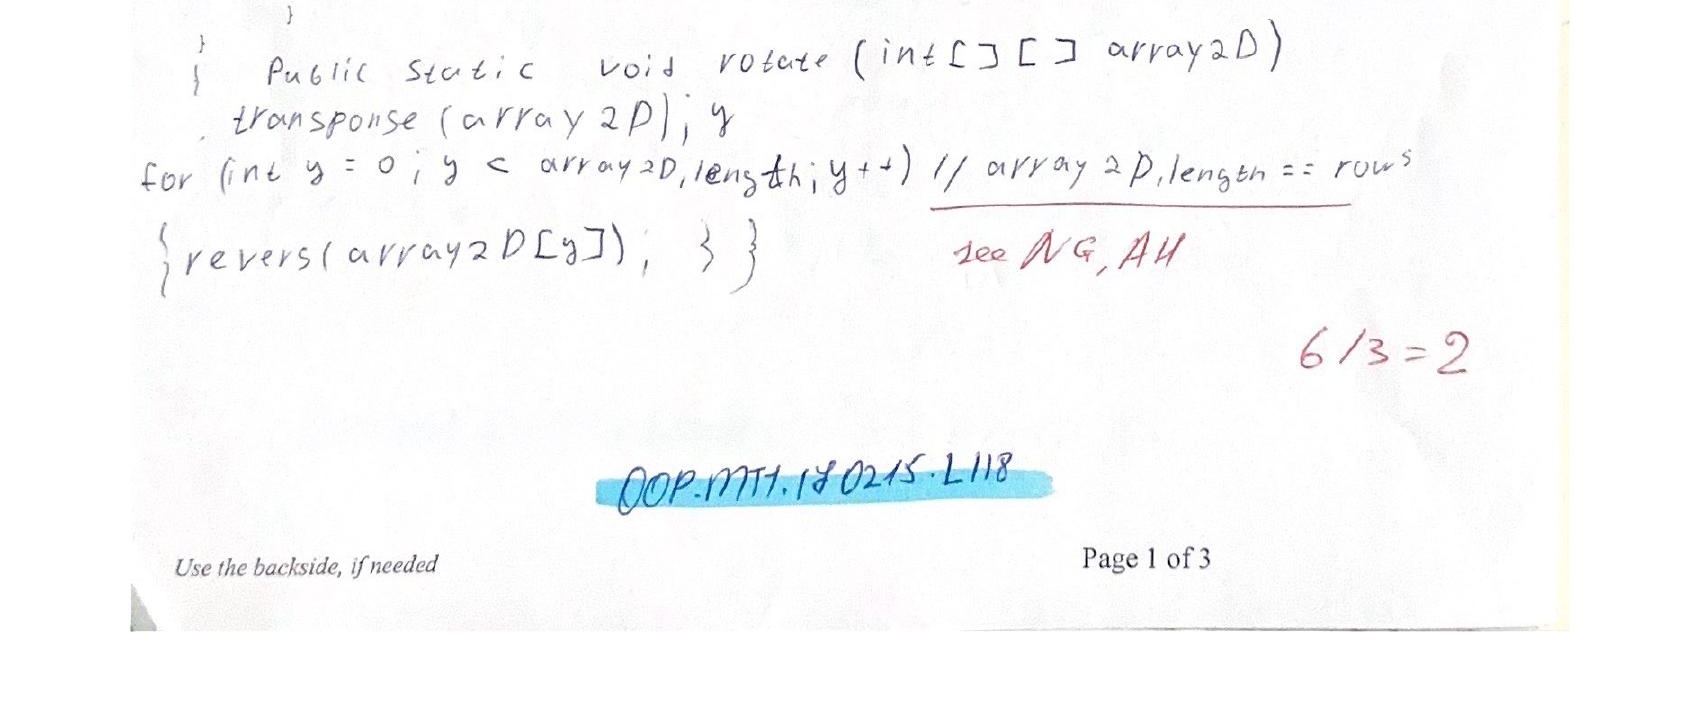 }
}
{ Public static void rotate (int[][] array2D)
transponse (array2D); y
for (int y = 0; y < array2D.length; y++) // array2D.length == rows
{revers(array2D[y]); } }
see NG, AH
6/3=2
OOP.MT1.180215.L118
Use the backside, if needed
Page 1 of 3